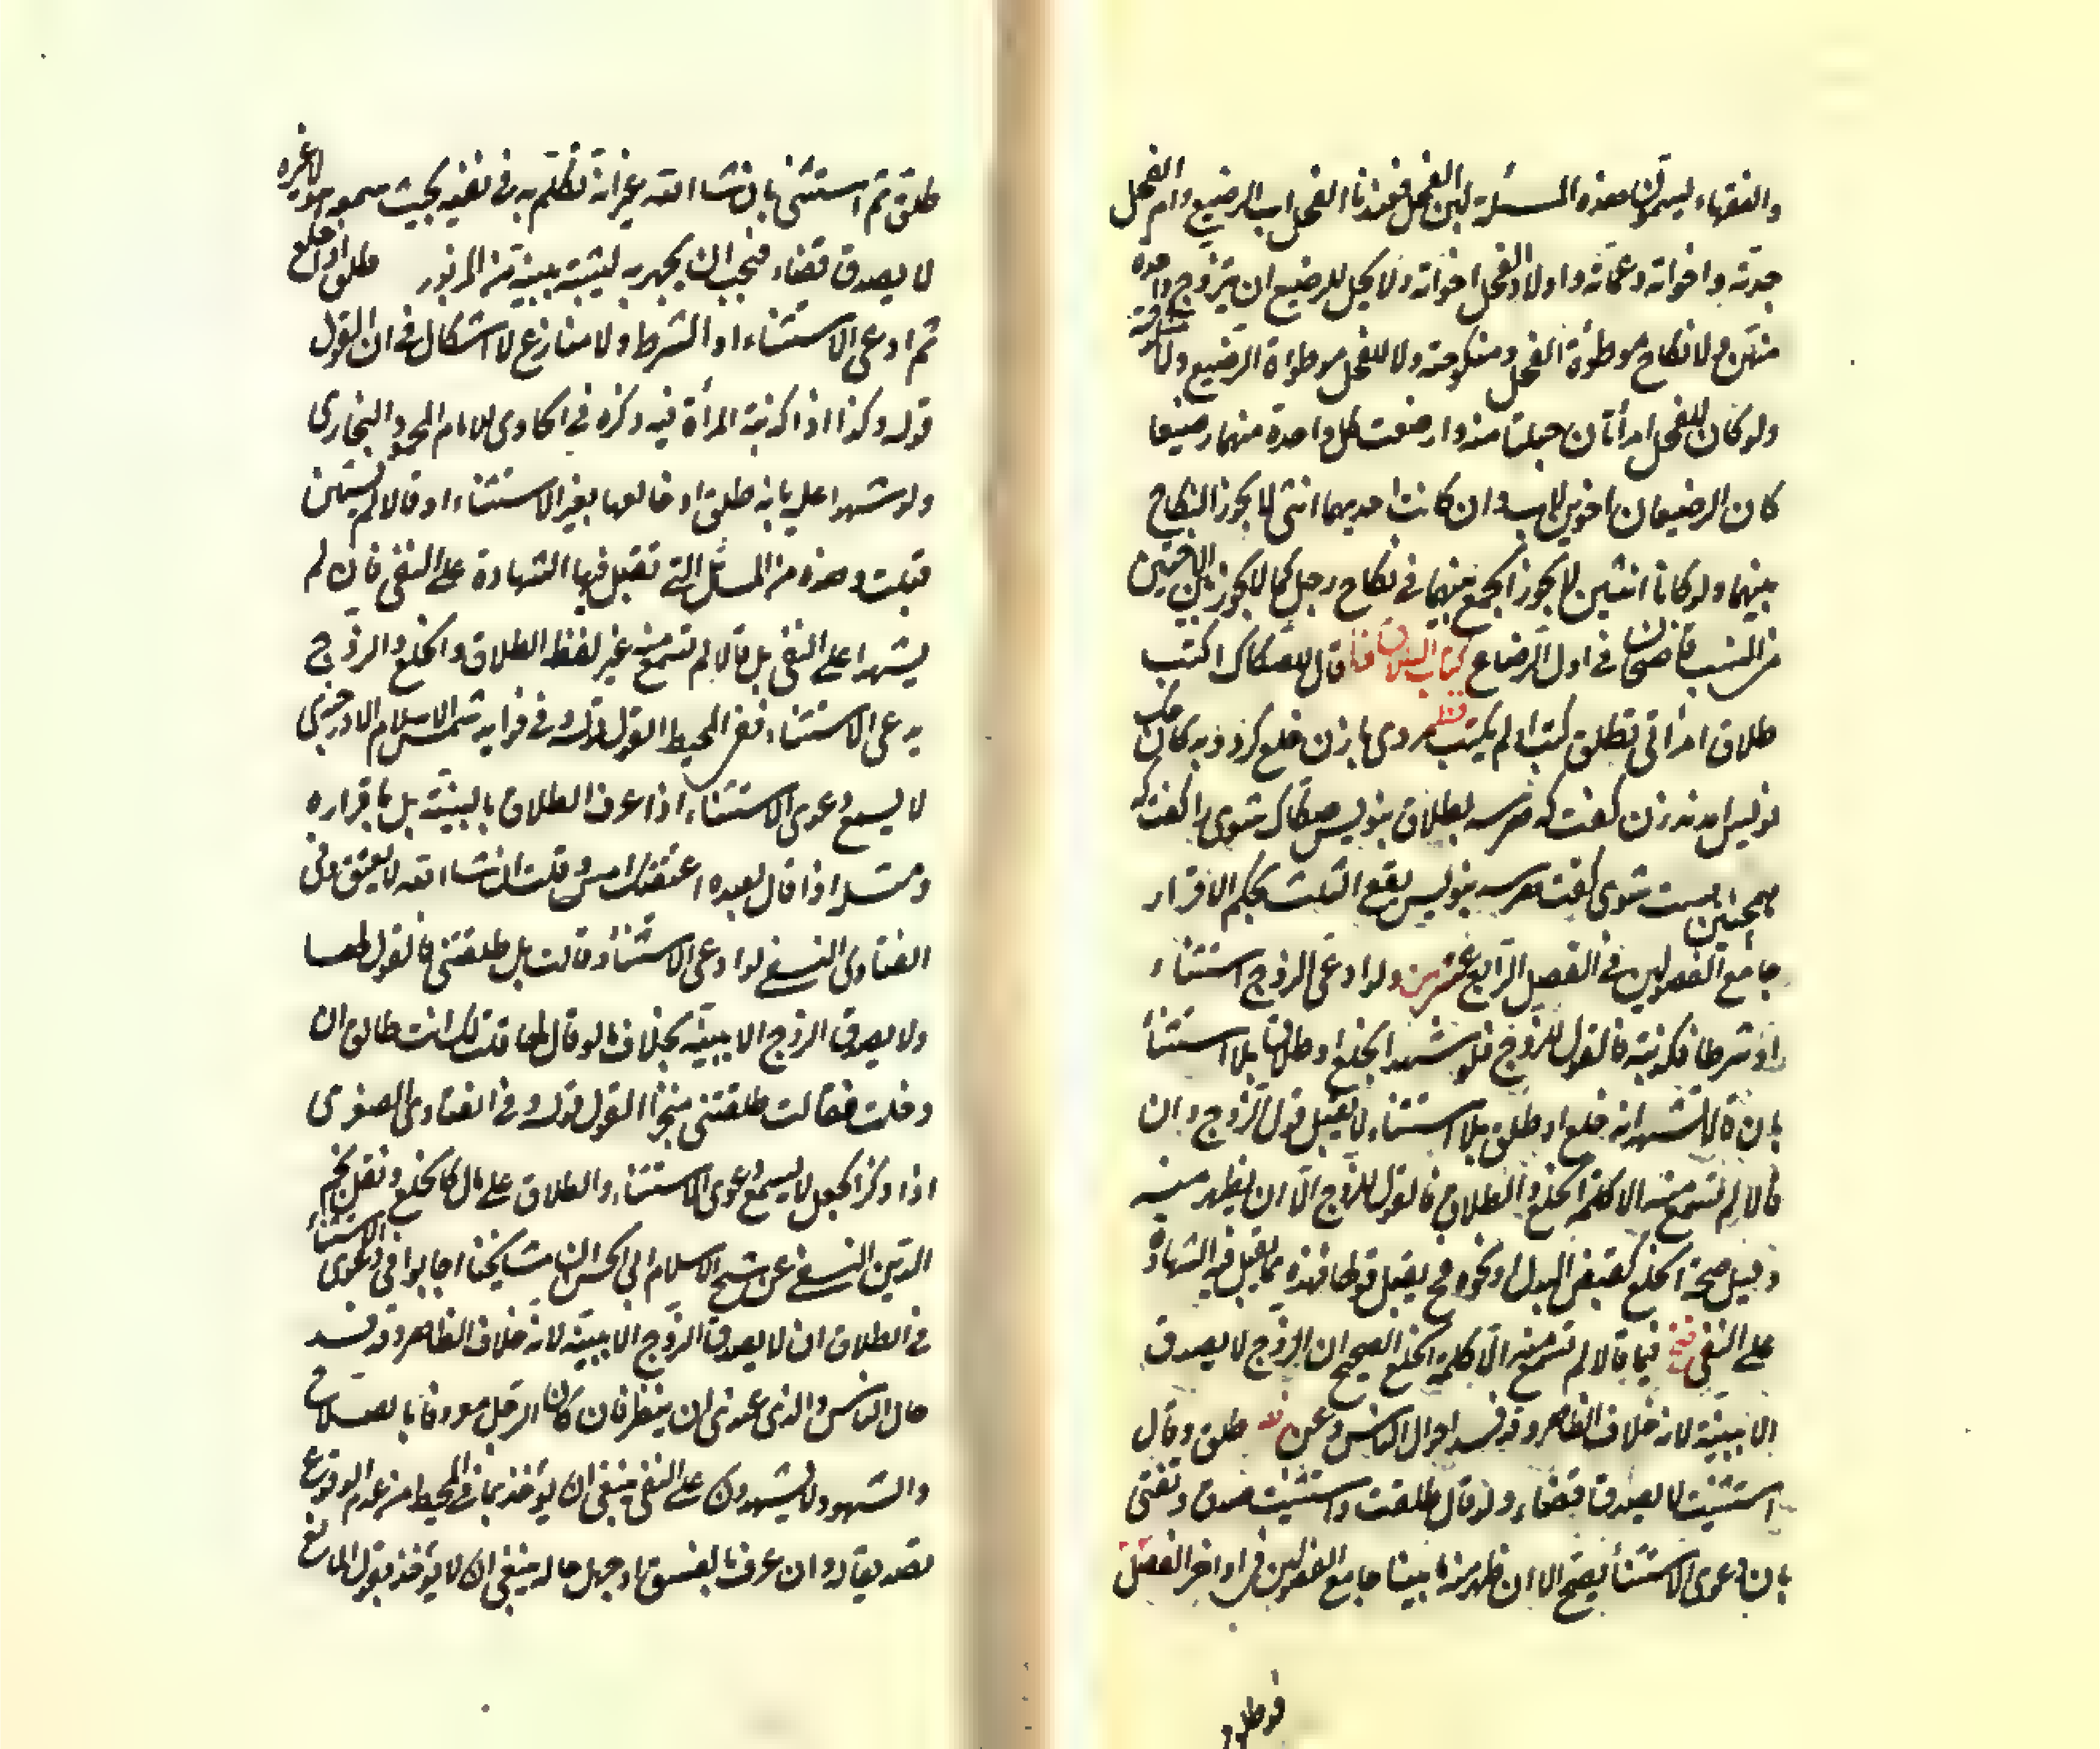 والفقهاء يسمون هذه المسئلة لبن الفحل فعندنا الفحل اب الرضيع وام الفحل
جدته واخواته وعماته واولاد الفحل اخواته ولا يحل للرضيع ان يتزوج واحدة
منهن ولا نكاح موطوءة الفحل ومنكوحته ولا للفحل موطوءة الرضيع ولا
ولو كان للفحل امرأتان حبلتا منه وارضعت كل واحدة منهما رضيعا
كان الرضيعان اخوين لاب وان كانت احديهما انثى لا يجوز النكاح
بينهما ولو كانا انثيين لا يجوز الجمع بينهما في نكاح رجل كما لا يجوز بين الاختين
من النسب قاضيخان في اول الرضاع كتاب الطلاق قال للصكاك اكتب
طلاق امرأتي تطلق كتب او لم يكتب مردى با زن خلع كرد وبه دكان صكاك
نويس امدند زن كفت كه هر سه بطلاق بنويس صكاك شوى را كفت كه
همچنين هست شوى كفت هر سه بنويس يقع الثلث بحكم الاقرار
جامع الفصولين في الفصل الرابع عشرين ولو ادعى الزوج استثناء
او شرطا فكذبته فالقول للزوج فلو شهدا بخلع او طلاق بلا استثناء
بان قالا نشهد انه خلع او طلق بلا استثناء لا يقبل قول الزوج وان
قالا لم نسمع منه الا كلمة الخلع والطلاق فالقول للزوج الا ان يظهر منه
دليل صحة الخلع كقبض البدل او نحوه فح يقبل قولها فهذه مما يقبل فيه الشهادة
على النفي فيما قالا لم نسمع منه الا كلمة الخلع الصحيح ان الزوج لا يصدق
الا ببينة لانه خلاف الظاهر وقد فسد احوال الناس وعن طلق وقال
استثنيت لا يصدق قضاء ولو قال طلقت واستثنيت صدق ونفتى
بان دعوى الاستثناء يصح الا ان ظهر منه ما بينا جامع الفصولين في اواخر الفصل
طلق ثم استثنى بان شاء الله غير انه تكلم به في نفسه بحيث سمعه هو لا غيره
لا يصدق قضاء فيجب ان يجهر به ليثبته ببينة من المزبور طلق او خلع
ثم ادعى الاستثناء او الشرط ولا منازع لا اشكال في ان القول
قوله وكذا اذا كذبته المرأة فيه ذكره في الحاوى للامام المحمود البخارى
ولو شهدا عليه بانه طلق او خالعها بغير الاستثناء او قالا لم يستثن
قبلت وهذه من المسائل التي تقبل فيها الشهادة على النفي فان لم
يشهدا على النفي بل قالا لم نسمع منه غير لفظ الطلاق والخلع والزوج
يدعى الاستثناء ففي المحيط القول قوله وفي فوايد شمس الاسلام الاوزجندى
لا يسمع دعوى الاستثناء اذا عرف الطلاق بالبينة بل باقراره
ومثله اذا قال لعبده اعتقتك امس وقلت ان شاء الله لا يعتق وفي
الفتاوى النسفي لو ادعى الاستثناء وقالت بل طلقتنى فالقول لها
ولا يصدق الزوج الا ببينة بخلاف ما لو قال لها قلت لك انت طالق ان
دخلت فقالت طلقتنى منجزا القول قوله وفي الفتاوى الصغرى
اذا ذكر الجعل لا يسمع دعوى الاستثناء والطلاق على مال كالخلع ونقل نجم
الدين النسفي عن شيخ الاسلام ابى الحسن ان مشايخنا اجابوا في دعوى الاستثناء
في الطلاق ان لا يصدق الزوج الا ببينة لانه خلاف الظاهر وقد فسد
حال الناس والذى عندى ان ينظر فان كان الرجل معروفا بالصلاح
والشهود لا يشهدون على النفي فينبغى ان يؤخذ بما في المحيط من عدم الوقوع
تصديقا له وان عرف بالفسق او جهل حاله فينبغى ان لا يؤخذ بقول المانع